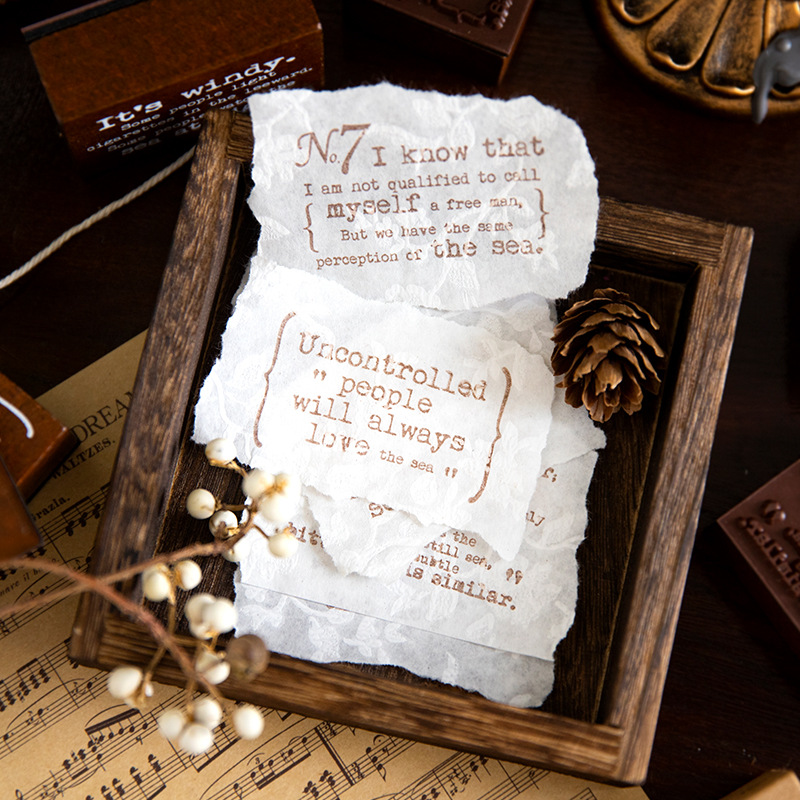 It's windy.
Some people light
cigarettes in the leeward.
Some people
No.7 I know that
I am not qualified to call
myself a free man,
But we have the same
perception of the sea.
Uncontrolled
" people
will always
love the sea "
the
still sea,
subtle
is similar.
DREAM
WALTZES.